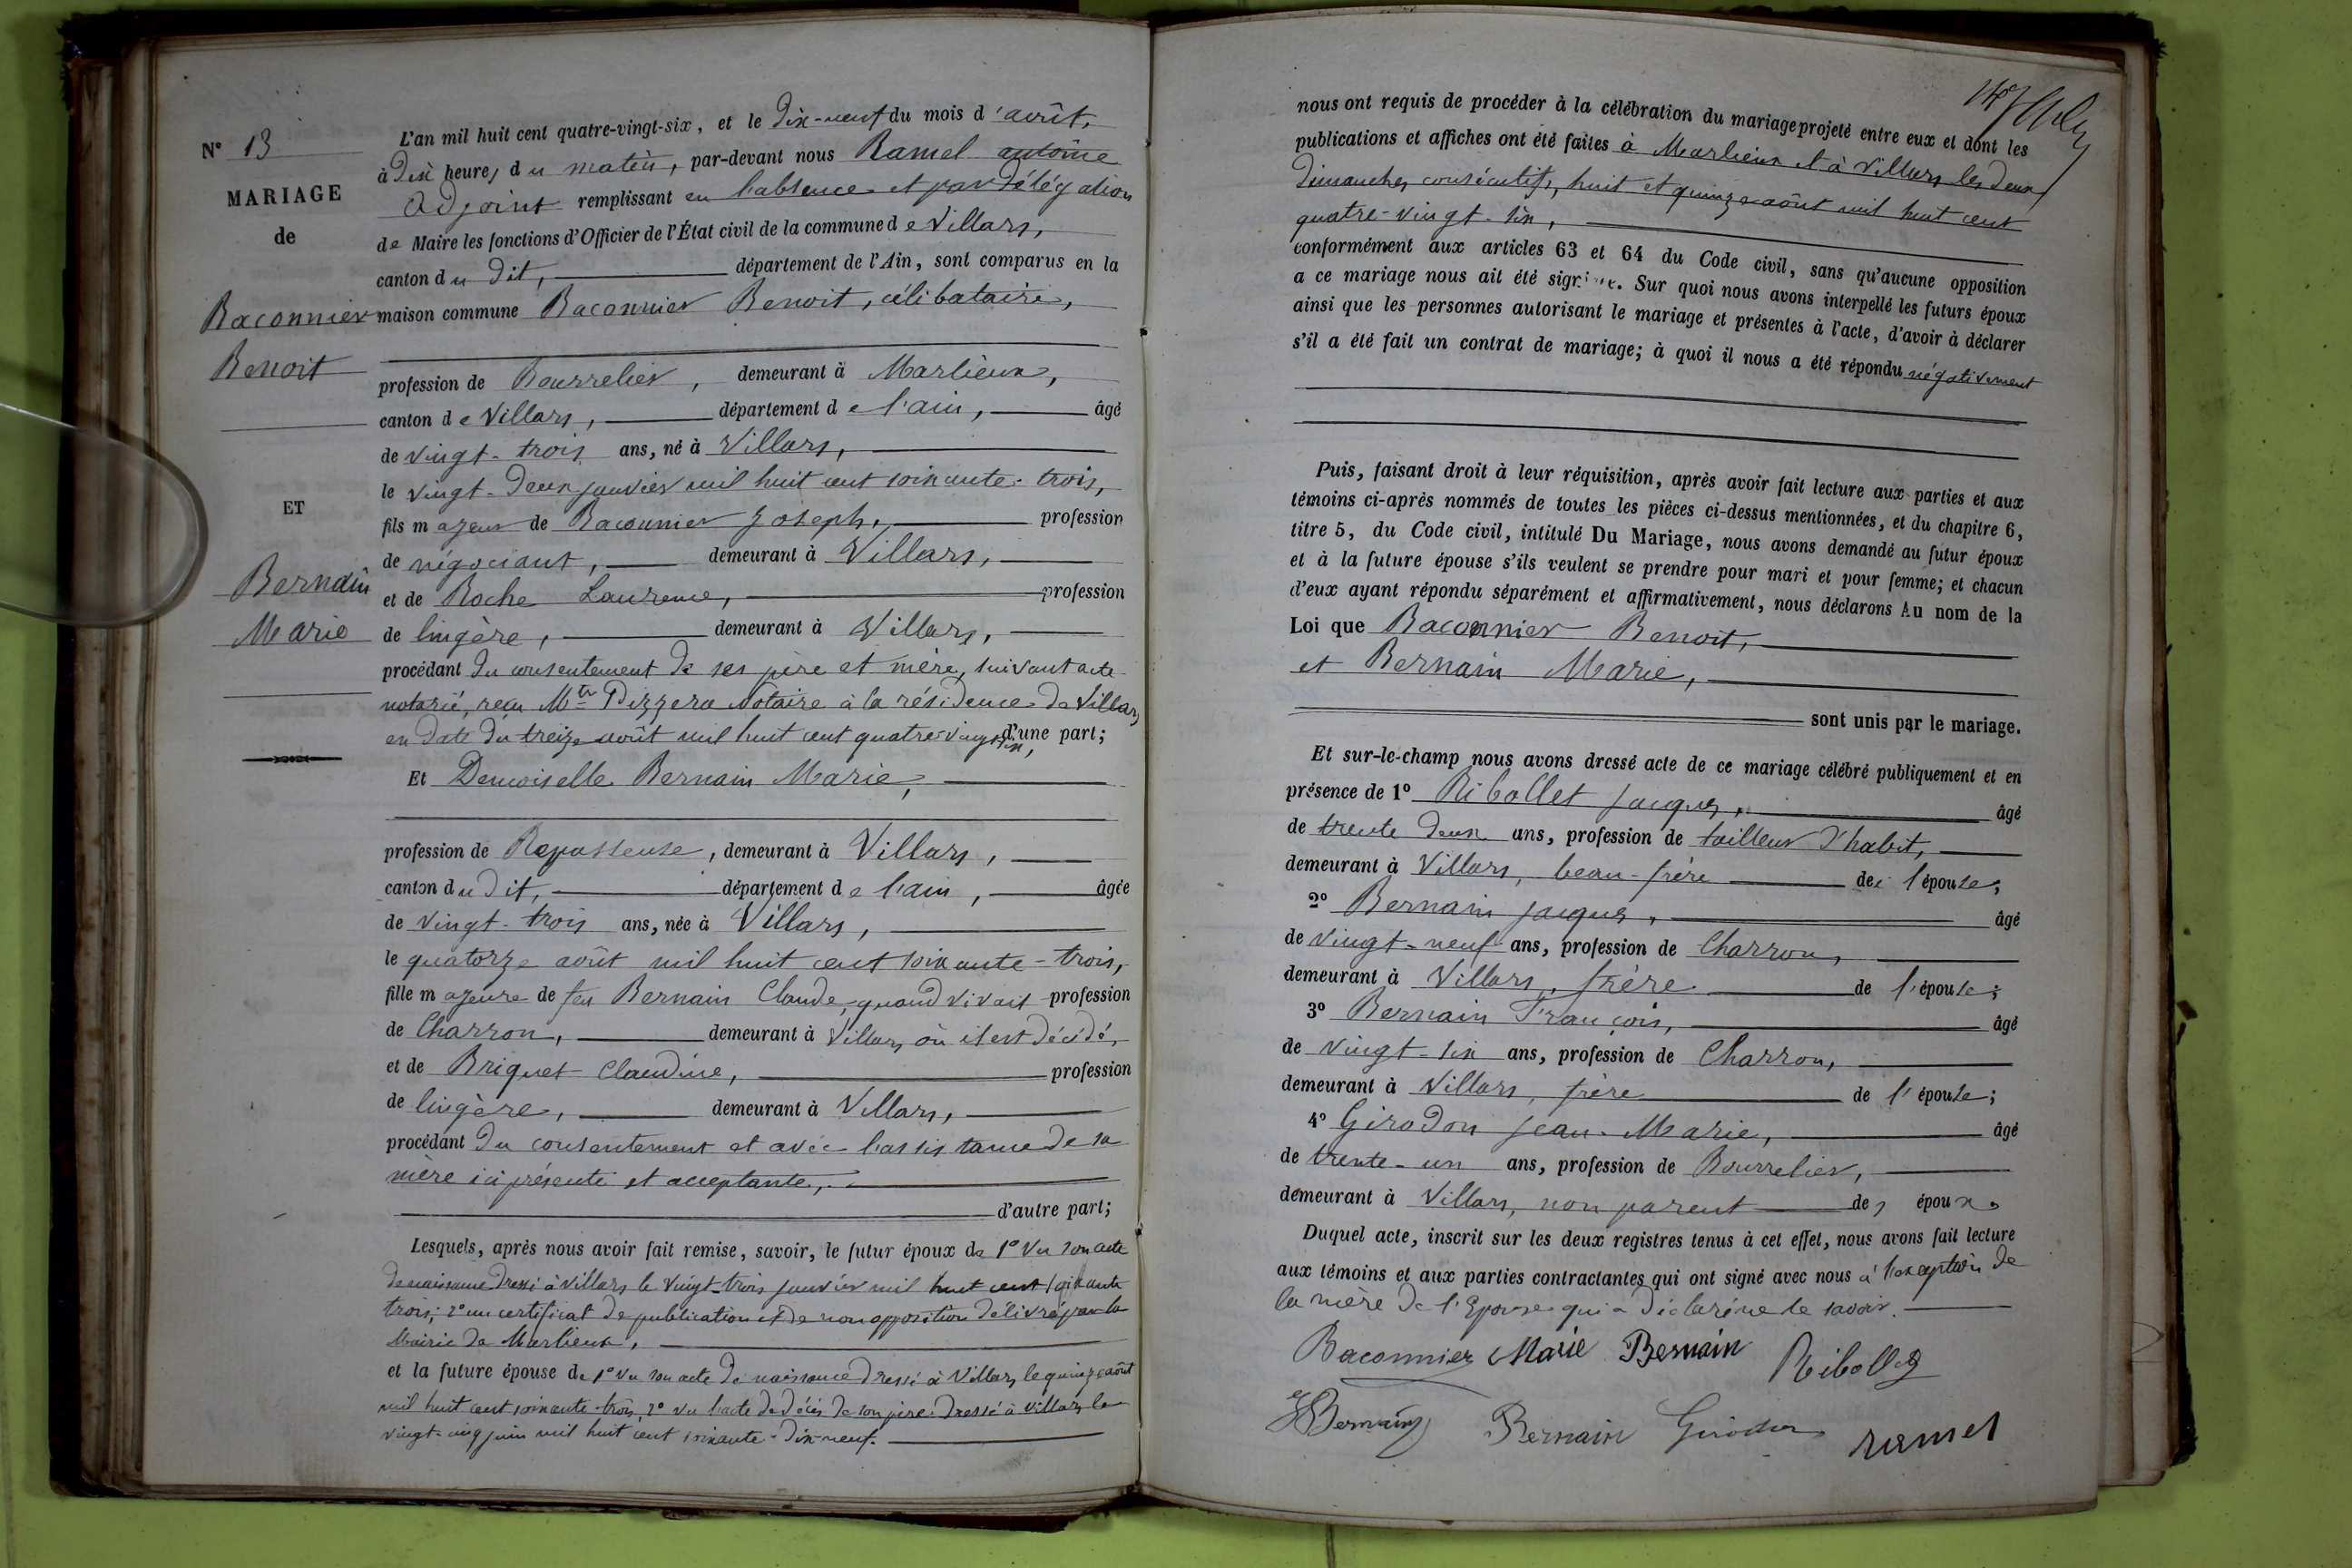 N° 13
MARIAGE
de
Baconnier
Benoit
ET
Bernain
Marie
L'an mil huit cent quatre-vingt-six, et le dix-neuf du mois d'août,
à dix heures du matin, par-devant nous Ramel antoine
adjoint remplissant en l'absence et par délégation
de Maire les fonctions d'Officier de l'État civil de la commune de Villars,
canton du dit, département de l'Ain, sont comparus en la
maison commune Baconnier Benoit, célibataire,
profession de Bourrelier, demeurant à Marlieux,
canton de Villars, département de l'ain, âgé
de vingt-trois ans, né à Villars,
le vingt-deux janvier mil huit cent soixante-trois,
fils majeur de Baconnier Joseph, profession
de négociant, demeurant à Villars,
et de Roche Laurence, profession
de lingère, demeurant à Villars,
procédant du consentement de ses père et mère, suivant acte
notarié, reçu Mtr Pizzera Notaire à la résidence de Villars
en date du treize août mil huit cent quatre-vingt-six, d'une part;
Et Demoiselle Bernain Marie,
profession de Repasseuse, demeurant à Villars,
canton du dit, département de l'ain, âgée
de vingt-trois ans, née à Villars,
le quatorze août mil huit cent soixante-trois,
fille majeure de feu Bernain Claude, quand vivait profession
de Charron, demeurant à Villars où il est décédé,
et de Briquet Claudine, profession
de lingère, demeurant à Villars,
procédant du consentement et avec l'assistance de sa
mère ici présente et acceptante,
d'autre part;
Lesquels, après nous avoir fait remise, savoir, le futur époux de 1° Vu son acte
de naissance dressé à Villars le vingt-trois janvier mil huit cent soixante
trois; 2° un certificat de publication et de non opposition délivré par la
Mairie de Marlieux,
et la future épouse de 1° Vu son acte de naissance dressé à Villars le quinze août
mil huit cent soixante-trois, 2° vu l'acte de décès de son père dressé à Villars le
vingt-cinq juin mil huit cent soixante-dix-neuf.
nous ont requis de procéder à la célébration du mariage projeté entre eux et dont les
publications et affiches ont été faites à Marlieux et à Villars les deux
dimanches consécutifs, huit et quinze août mil huit cent
quatre-vingt-six,
conformément aux articles 63 et 64 du Code civil, sans qu'aucune opposition
a ce mariage nous ait été signifiée. Sur quoi nous avons interpellé les futurs époux
ainsi que les personnes autorisant le mariage et présentes à l'acte, d'avoir à déclarer
s'il a été fait un contrat de mariage; à quoi il nous a été répondu négativement
Puis, faisant droit à leur réquisition, après avoir fait lecture aux parties et aux
témoins ci-après nommés de toutes les pièces ci-dessus mentionnées, et du chapitre 6,
titre 5, du Code civil, intitulé Du Mariage, nous avons demandé au futur époux
et à la future épouse s'ils veulent se prendre pour mari et pour femme; et chacun
d'eux ayant répondu séparément et affirmativement, nous déclarons Au nom de la
Loi que Baconnier Benoit,
et Bernain Marie,
sont unis par le mariage.
Et sur-le-champ nous avons dressé acte de ce mariage célébré publiquement et en
présence de 1° Ribollet Jacques, âgé
de trente deux ans, profession de tailleur d'habit,
demeurant à Villars, beau-frère de l'épouse;
2° Bernain Jacques, âgé
de vingt-neuf ans, profession de Charron,
demeurant à Villars, frère de l'épouse;
3° Bernain François, âgé
de vingt-six ans, profession de Charron,
demeurant à Villars, frère de l'épouse;
4° Girodon Jean-Marie, âgé
de trente-un ans, profession de Bourrelier,
demeurant à Villars, non parent des époux.
Duquel acte, inscrit sur les deux registres tenus à cet effet, nous avons fait lecture
aux témoins et aux parties contractantes qui ont signé avec nous à l'exception de
la mère de l'Epouse qui a déclaré ne le savoir.
Baconnier Marie Bernain Ribollet
Bernain Bernain Girodon ramel